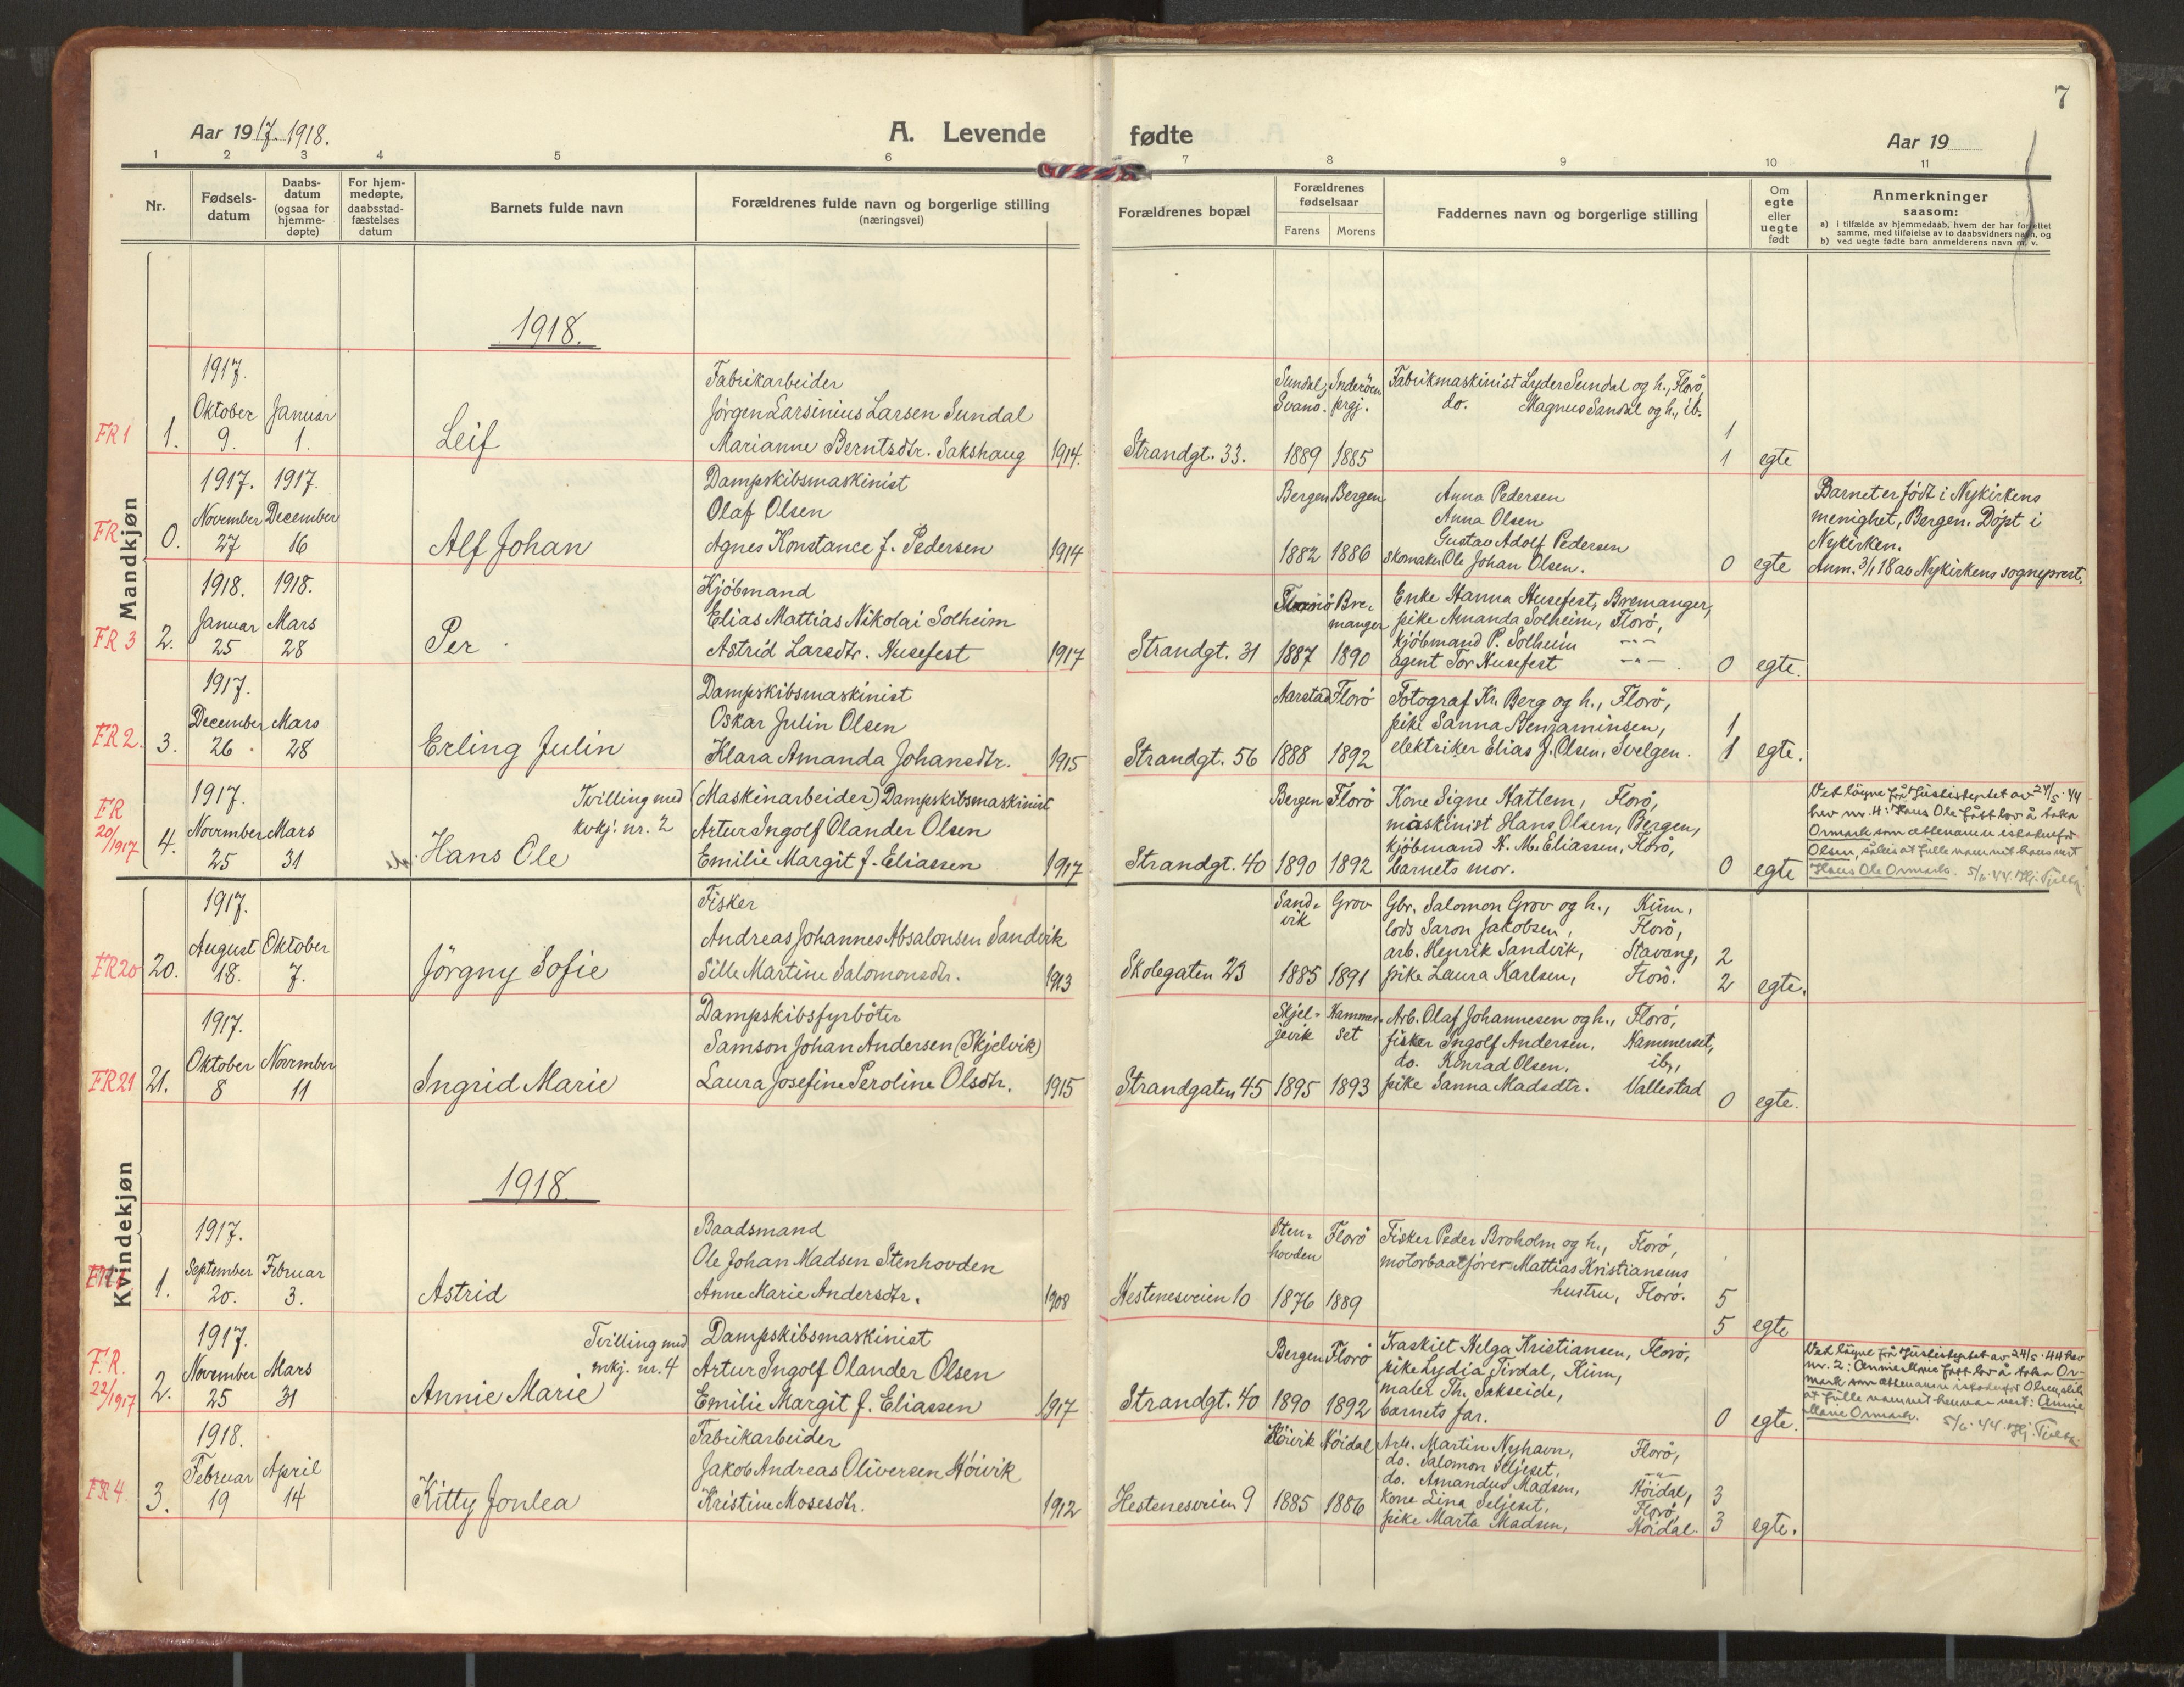 7
Aar 1917. 1918.
A. Levende fødte
Aar 19
1 2 3 4 5 6 7 8 9 10 11
Nr.
Fødsels-
datum
Daabs-
datum
(ogsaa for
hjemme-
døpte)
For hjem-
medøpte,
daabsstad-
fæstelses
datum
Barnets fulde navn
Forældrenes fulde navn og borgerlige stilling
(næringsvei)
Forældrenes bopæl
Forældrenes
fødselsaar
Farens Morens
Faddernes navn og borgerlige stilling
Om
egte
eller
uegte
født
Anmerkninger
saasom:
a) i tilfælde av hjemmedaab, hvem der har forrettet
samme, med tilføielse av to daabsvidners navn, og
b) ved uegte fødte barn anmelderens navn m. v.
Mandkjøn
1918.
FR 1
1.
1917.
Oktober
9.
Januar
1.
Leif
Fabrikarbeider
Jørgen Larsinius Larsen Sundal
Marianne Berntsdtr. Sakshaug 1914.
Strandgt. 33.
Sundal,
Svanö.
1889
Inderöen
prgj.
1885
Fabrikmaskinist Lyder Sundal og h., Florö,
do. Magnus Sandal og h., ib.
1
1
egte
FR
0.
1917.
November
27
1917.
December
16
Alf Johan
Dampskibsmaskinist
Olaf Olsen
Agnes Konstance f. Pedersen 1914
Bergen
1882
Bergen
1886
Anna Pedersen
Anna Olsen
Gustav Adolf Pedersen
skomaker Ole Johan Olsen.
0
egte
Barnet er födt i Nykirkens
menighet, Bergen. Döpt i
Nykirken.
Anm. 3/1 18 av Nykirkens sogneprest.
FR 3
2.
1918.
Januar
25
1918.
Mars
28
Per
Kjöbmand
Elias Mattias Nikolai Solheim
Astrid Larsdtr. Husefest 1917
Strandgt. 31
Florö
1887
Bre-
manger
1890
Enke Hanna Husefest, Bremanger,
pike Amanda Solheim, Florö,
kjöbmand P. Solheim -"-
agent Tor Husefest -"-
0
egte.
FR 2.
3.
1917.
December
26
Mars
28
Erling Julin
Dampskibsmaskinist
Oskar Julin Olsen
Klara Amanda Johansdtr. 1915
Strandgt. 56
Aarstad
1888
Florö
1892
Fotograf Kr. Berg og h., Florö,
pike Sanna Benjaminsen,
elektriker Elias J. Olsen, Svelgen.
1
1
egte.
FR
20/1917
4.
1917.
November
25
Mars
31
Tvilling med
kvkj. nr. 2
Hans Ole
(Maskinarbeider) Dampskibsmaskinist
Artur Ingolf Olander Olsen
Emilie Margit f. Eliassen 1917
Strandgt. 40
Bergen
1890
Florö
1892
Kone Signe Hattem, Florö,
maskinist Hans Olsen, Bergen,
kjöbmand N. M. Eliassen, Florö,
barnets mor.
0
egte
Ved löyve frå Justisdeptet av 24/5-44
hev nr. 4: Hans Ole fått lov å taka
Ormark som ættenamn istadenfor
Olsen, såleis at fulle namnet hans vert
Hans Ole Ormark. 5/6-44.
Kvindekjøn
FR 20
20.
1917.
August
18.
Oktober
7.
Jörgny Sofie
Fisker
Andreas Johannes Absalonsen Sandvik
Sille Martine Salomonsdtr. 1913
Skolegaten 23
Sand-
vik
1885
Grov
1891
Gbr. Salomon Grov og h., Kinn,
lods Saron Jakobsen, Florö,
arb. Henrik Sandvik, Stavang,
pike Laura Karlsen, Florö.
2
2
egte.
FR 21
21.
1917.
Oktober
8
November
11
Ingrid Marie
Dampskibsfyrböter
Samson Johan Andersen (Skjelvik)
Laura Josefine Peroline Olsdtr. 1915
Strandgaten 45
Skjel-
jevik
1895
Hammer-
set
1893
Arb. Olaf Johannesen og h., Florö,
fisker Ingolf Andersen, Hammerset,
do. Konrad Olsen, ib.,
pike Sanna Madsdtr. Vallestad
0
egte.
1918.
1.
1917.
September
20.
Februar
3.
Astrid
Baadsmand
Ole Johan Madsen Stenhovden
Anne Marie Andersdtr. 1908
Hestenesveien 10
Sten-
hovden
1876
Florö
1889
Fisker Peder Broholm og h., Florö,
motorbaatförer Mattias Kristiansens
hustru, Florö.
5
5
egte
F.R.
22/1917
2.
1917.
November
25
Mars
31
Tvilling med
mkj. nr. 4
Annie Marie
Dampskibsmaskinist
Artur Ingolf Olander Olsen
Emilie Margit f. Eliassen 1917
Strandgt. 40
Bergen
1890
Florö
1892
Fraskilt Helga Kristiansen, Florö,
pike Lydia Tirdal, Kinn,
maler Th. Sakseide,
barnets far.
0
egte.
Ved löyve frå Justisdeptet av 24/5-44 hev
nr. 2: Annie Marie fått lov å taka Or-
mark som ættenamn istadenfor Olsen, slik
at fulle namnet hennar vert: Annie
Marie Ormark. 5/6-44.
FR 4.
3.
1918.
Februar
19
April
14
Kitty Jonlea
Fabrikarbeider
Jakob Andreas Oliversen Höivik
Kristine Mosesdtr. 1912
Hestenesveien 9
Höivik
1885
Höidal
1886
Arb. Martin Nyhavn, Florö,
do. Salomon Seljeset, -"-
do. Amandus Madsen, Höidal,
Kone Lina Seljeset, Florö,
pike Marta Madsen, Höidal.
3
3
egte.